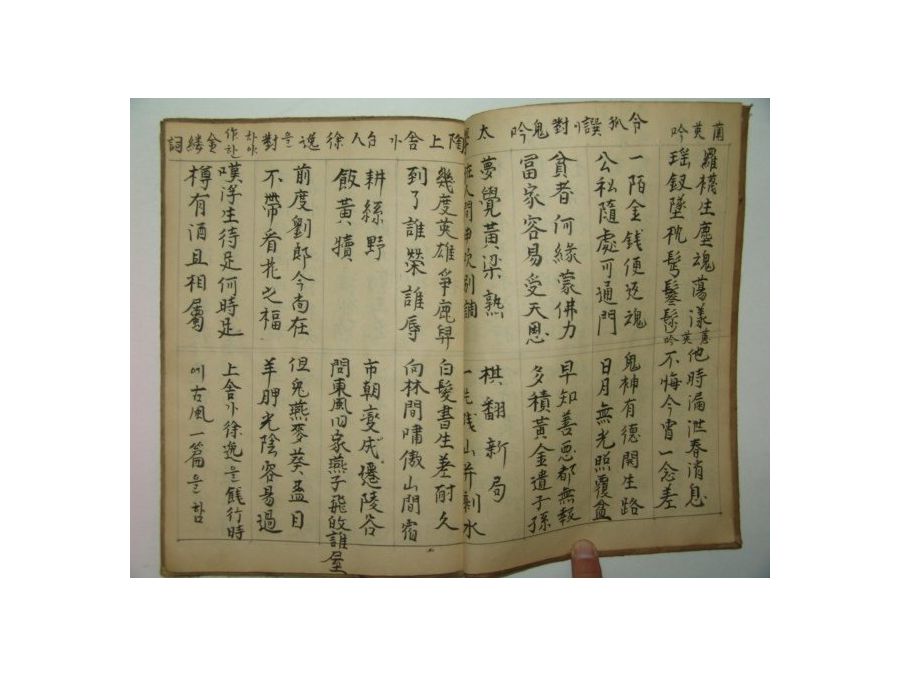 蘭英吟
令狐譔이對鬼吟
太
陶上舍가台人徐逸을對하야作한金縷詞
羅襪生塵魂蕩漾 他時漏泄春消息
瑤釵墜枕髩鬟鬆 不悔今宵一念差
蕙英吟
一陌金錢便返魂 鬼神有德開生路
公私隨處可通門 日月無光照覆盆
貧者何緣蒙佛力 早知善惡都無報
富家容易受天恩 多積黃金遺子孫
夢覺黃梁熟 棋翻新局
在人間 吹別調 一洗殘山幷剩水
幾度英雄爭鹿 白髮書生差耐久
到了誰榮誰辱 向林間嘯傲山間宿
耕綠野 市朝變成遷陵谷
飯黃犢 問東風旧家燕子飛 誰屋
前度劉郎今尚在 但兎燕麥葵盈目
不帶看花之福 羊胛光陰容易過
嘆浮生待足何時足 上舍가徐逸을餞行時
樽有酒且相屬 에古風一篇을함